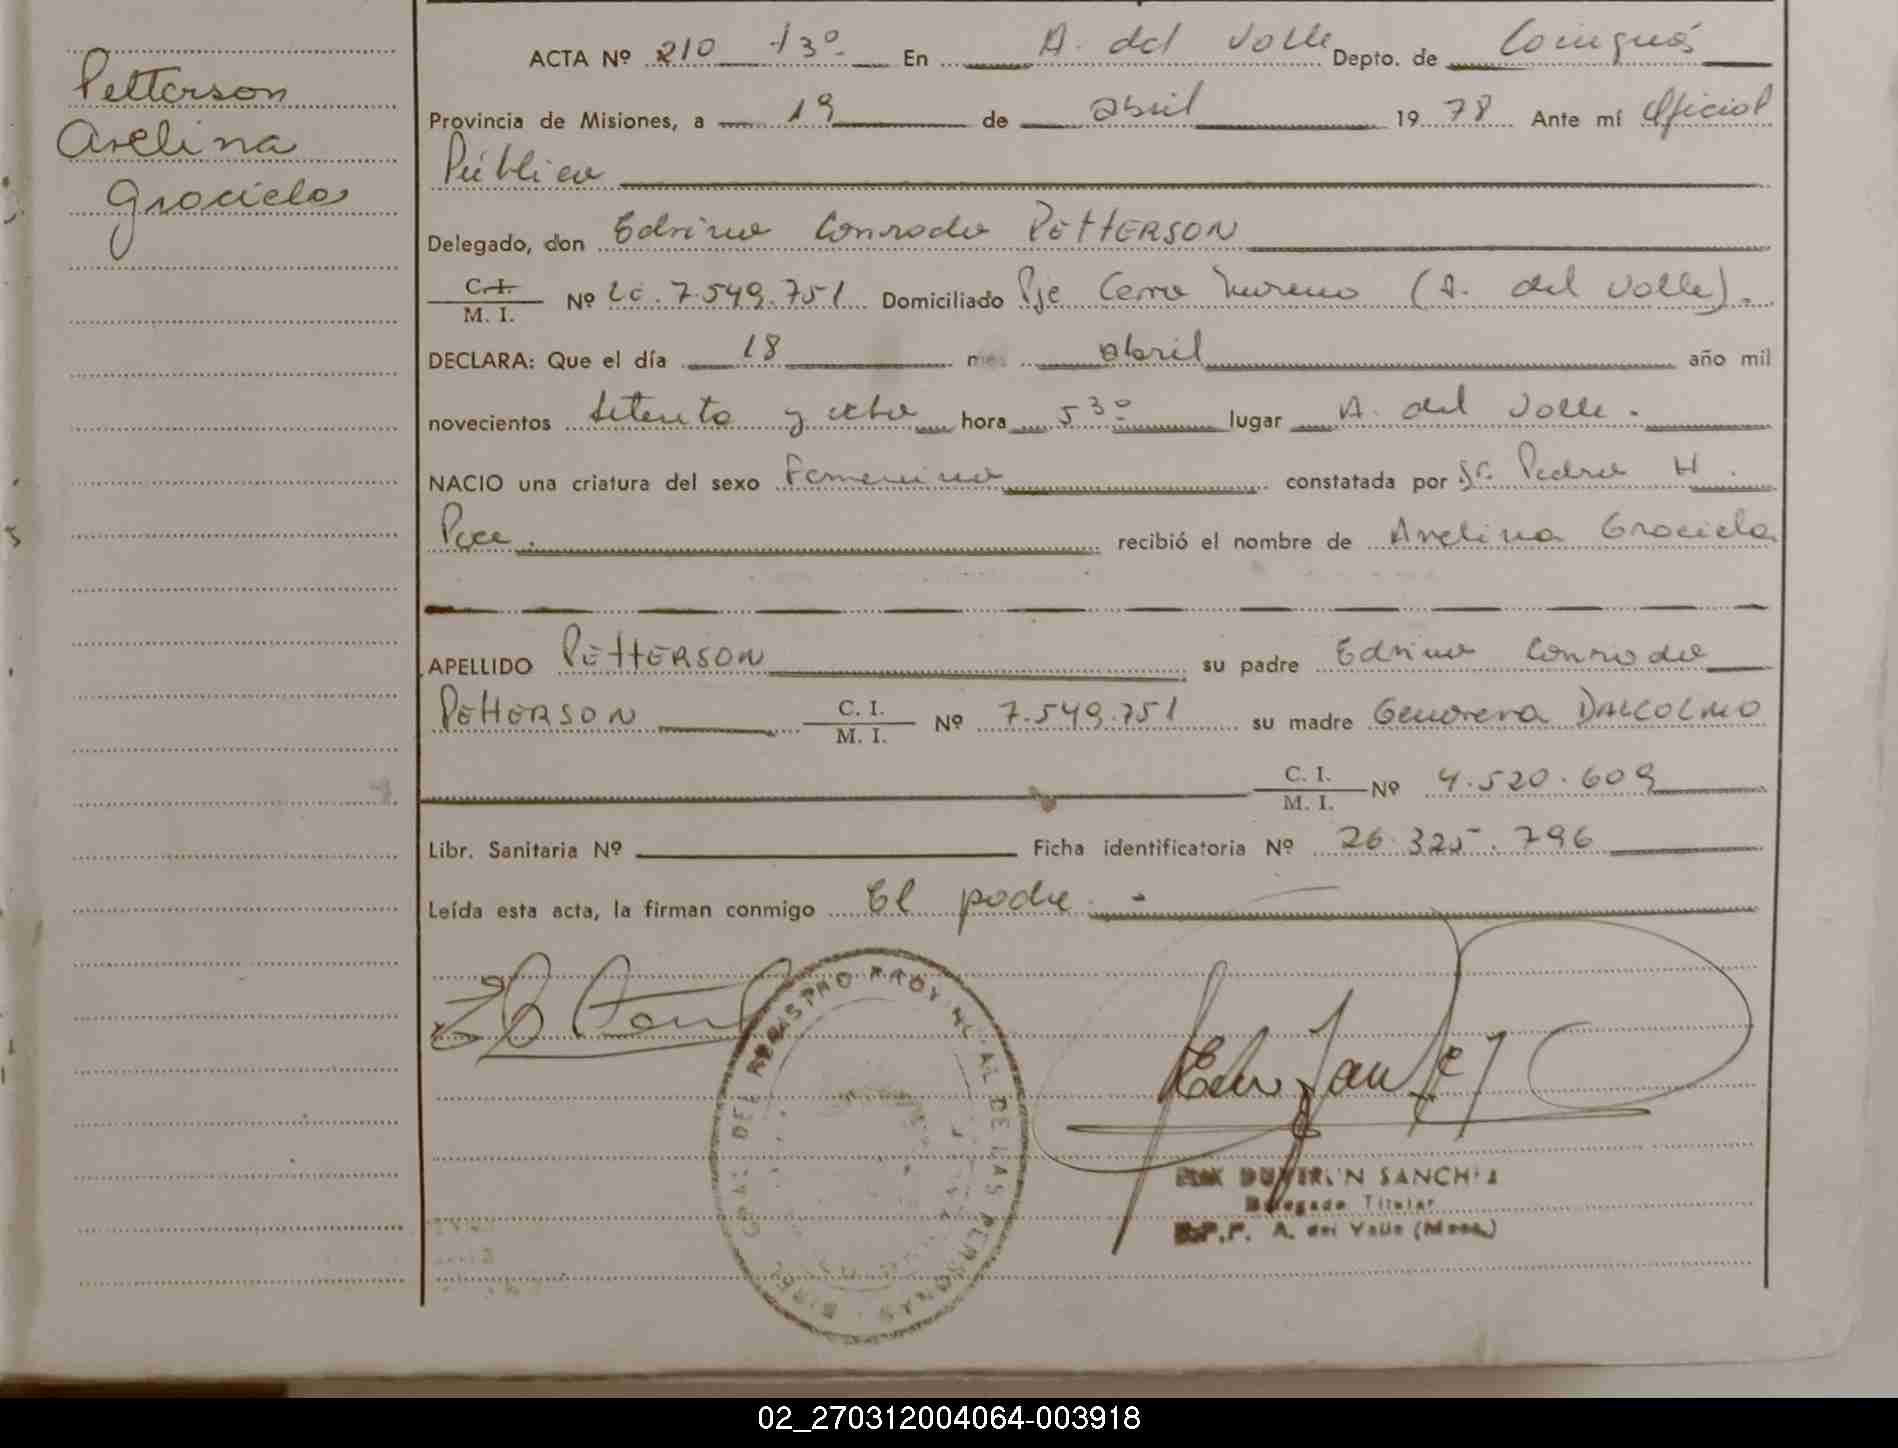 Petterson
Avelina
Graciela
ACTA Nº 210 -T3º- En A. del Valle Depto. de Cainguás
Provincia de Misiones, a 19 de abril 1978 Ante mí Oficial
Público
Delegado, don Edsino Conrado PETTERSON
C.I. M. I. Nº LE. 7.549.751 Domiciliado Pje Cerro Moreno (A. del Valle).
DECLARA: Que el día 18 mes abril año mil
novecientos setenta y ocho hora 5 30 lugar A. del Valle.
NACIO una criatura del sexo Femenino constatada por Dr. Pedro H.
recibió el nombre de Avelina Graciela
APELLIDO PETTERSON su padre Edsino Conrado
PETTERSON C. I. M. I. Nº 7.549.751 su madre Genoveva DALCOLMO
C. I. M. I. Nº 4.520.609
Libr. Sanitaria Nº Ficha identificatoria Nº 26.325.796
Leída esta acta, la firman conmigo El padre.-
REGISTRO PROVINCIAL DE LAS PERSONAS
SANCHEZ
Delegado Titular
R.P.P. A. del Valle (Mnes.)
02_270312004064-003918